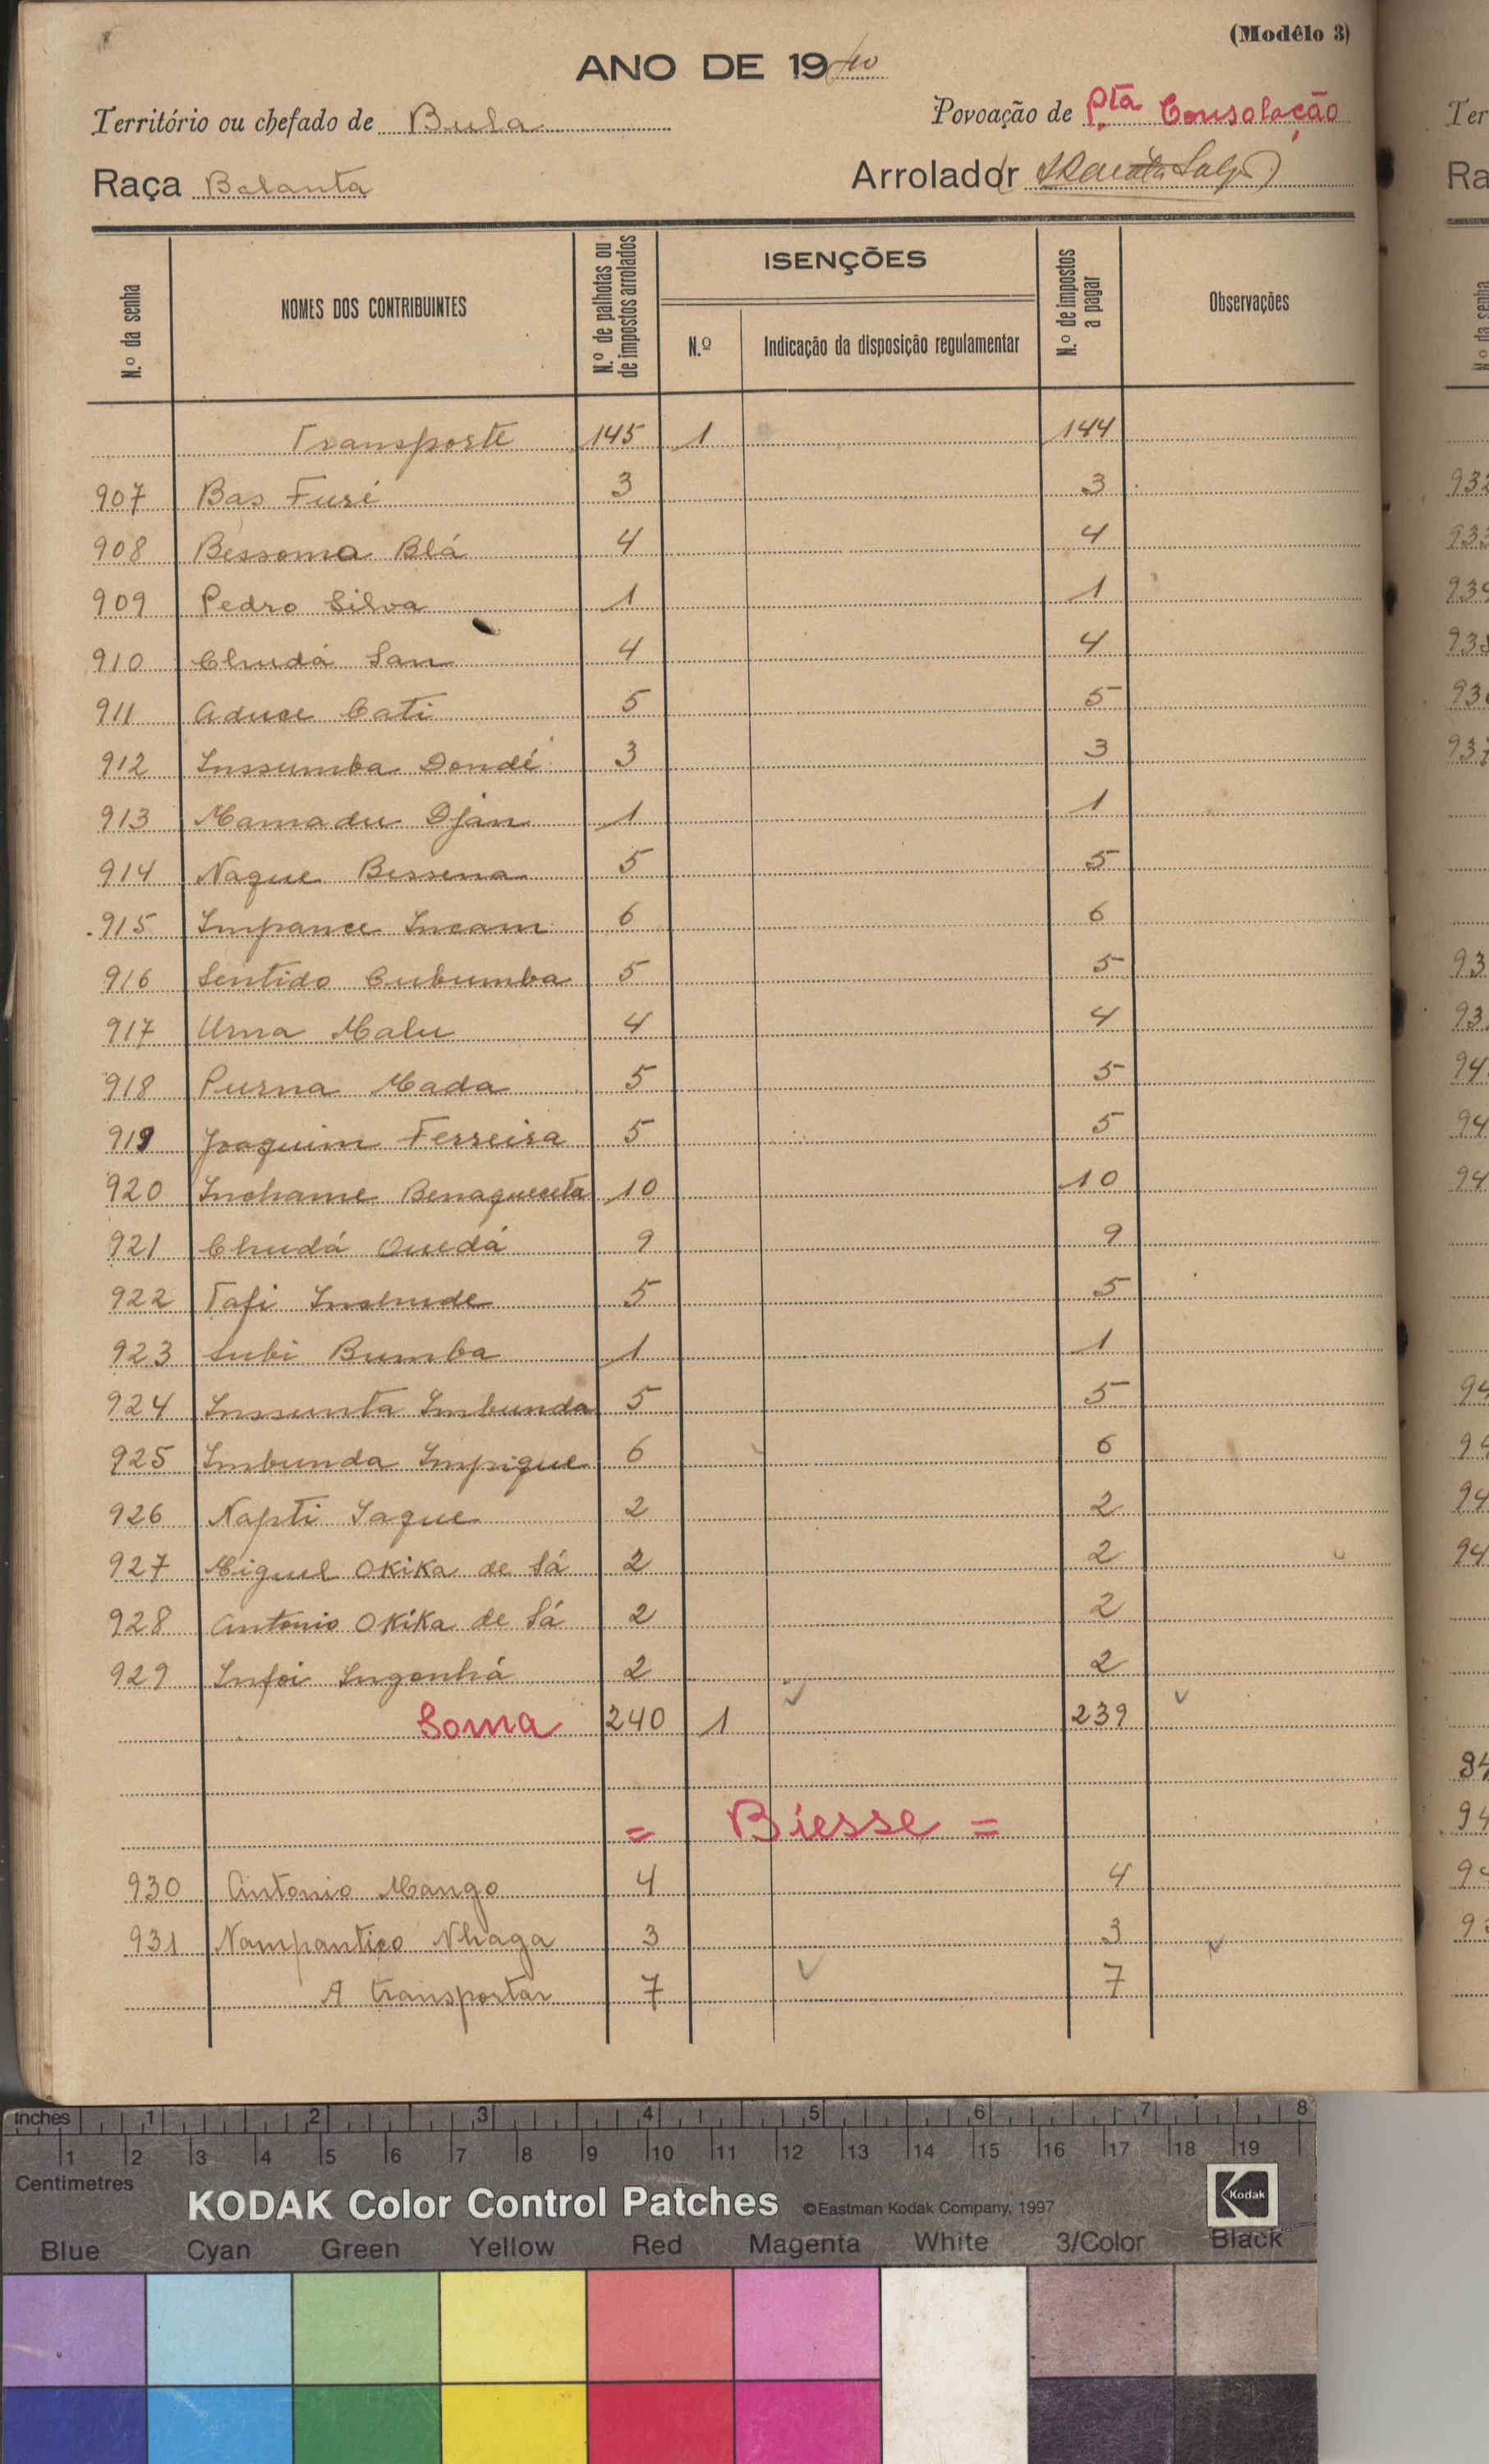 (Modêlo 3)
ANO DE 1940
Território ou chefado de Bula Povoação de Pta Consolação
Raça Balanta Arrolador
N.º da senha NOMES DOS CONTRIBUINTES N.º de palhotas ou de impostos arrolados ISENÇÕES N.º Indicação da disposição regulamentar N.º de impostos a pagar Observações
Transporte 145 1 144
907 Bas Furé 3 3
908 Bessoma Blá 4 4
909 Pedro Silva 1 1
910 Chudá San 4 4
911 Aduce Cati 5 5
912 Inssumba Dondé 3 3
913 Mamadu Djan 1 1
914 Naque Bessena 5 5
915 Impance Incam 6 6
916 Sentido Cubumba 5 5
917 Urna Malu 4 4
918 Purna Mada 5 5
919 Joaquim Ferreira 5 5
920 Inchame Benaquenta 10 10
921 Chudá Quedá 9 9
922 Tafi Inchude 5 5
923 Subi Bumba 1 1
924 Inssunta Imbunda 5 5
925 Imbunda Impique 6 6
926 Napti Iaque 2 2
927 Miguel Okika de Sá 2 2
928 Antonio Okika de Sá 2 2
929 Infoi Ingonhá 2 2
Soma 240 1 239
= Biesse =
930 Antonio Mango 4 4
931 Nampantico Nhaga 3 3
A transportar 7 7
inches 1 2 3 4 5 6 7 8
1 2 3 4 5 6 7 8 9 10 11 12 13 14 15 16 17 18 19
Centimetres
KODAK Color Control Patches ©Eastman Kodak Company, 1997 Kodak
Blue Cyan Green Yellow Red Magenta White 3/Color Black